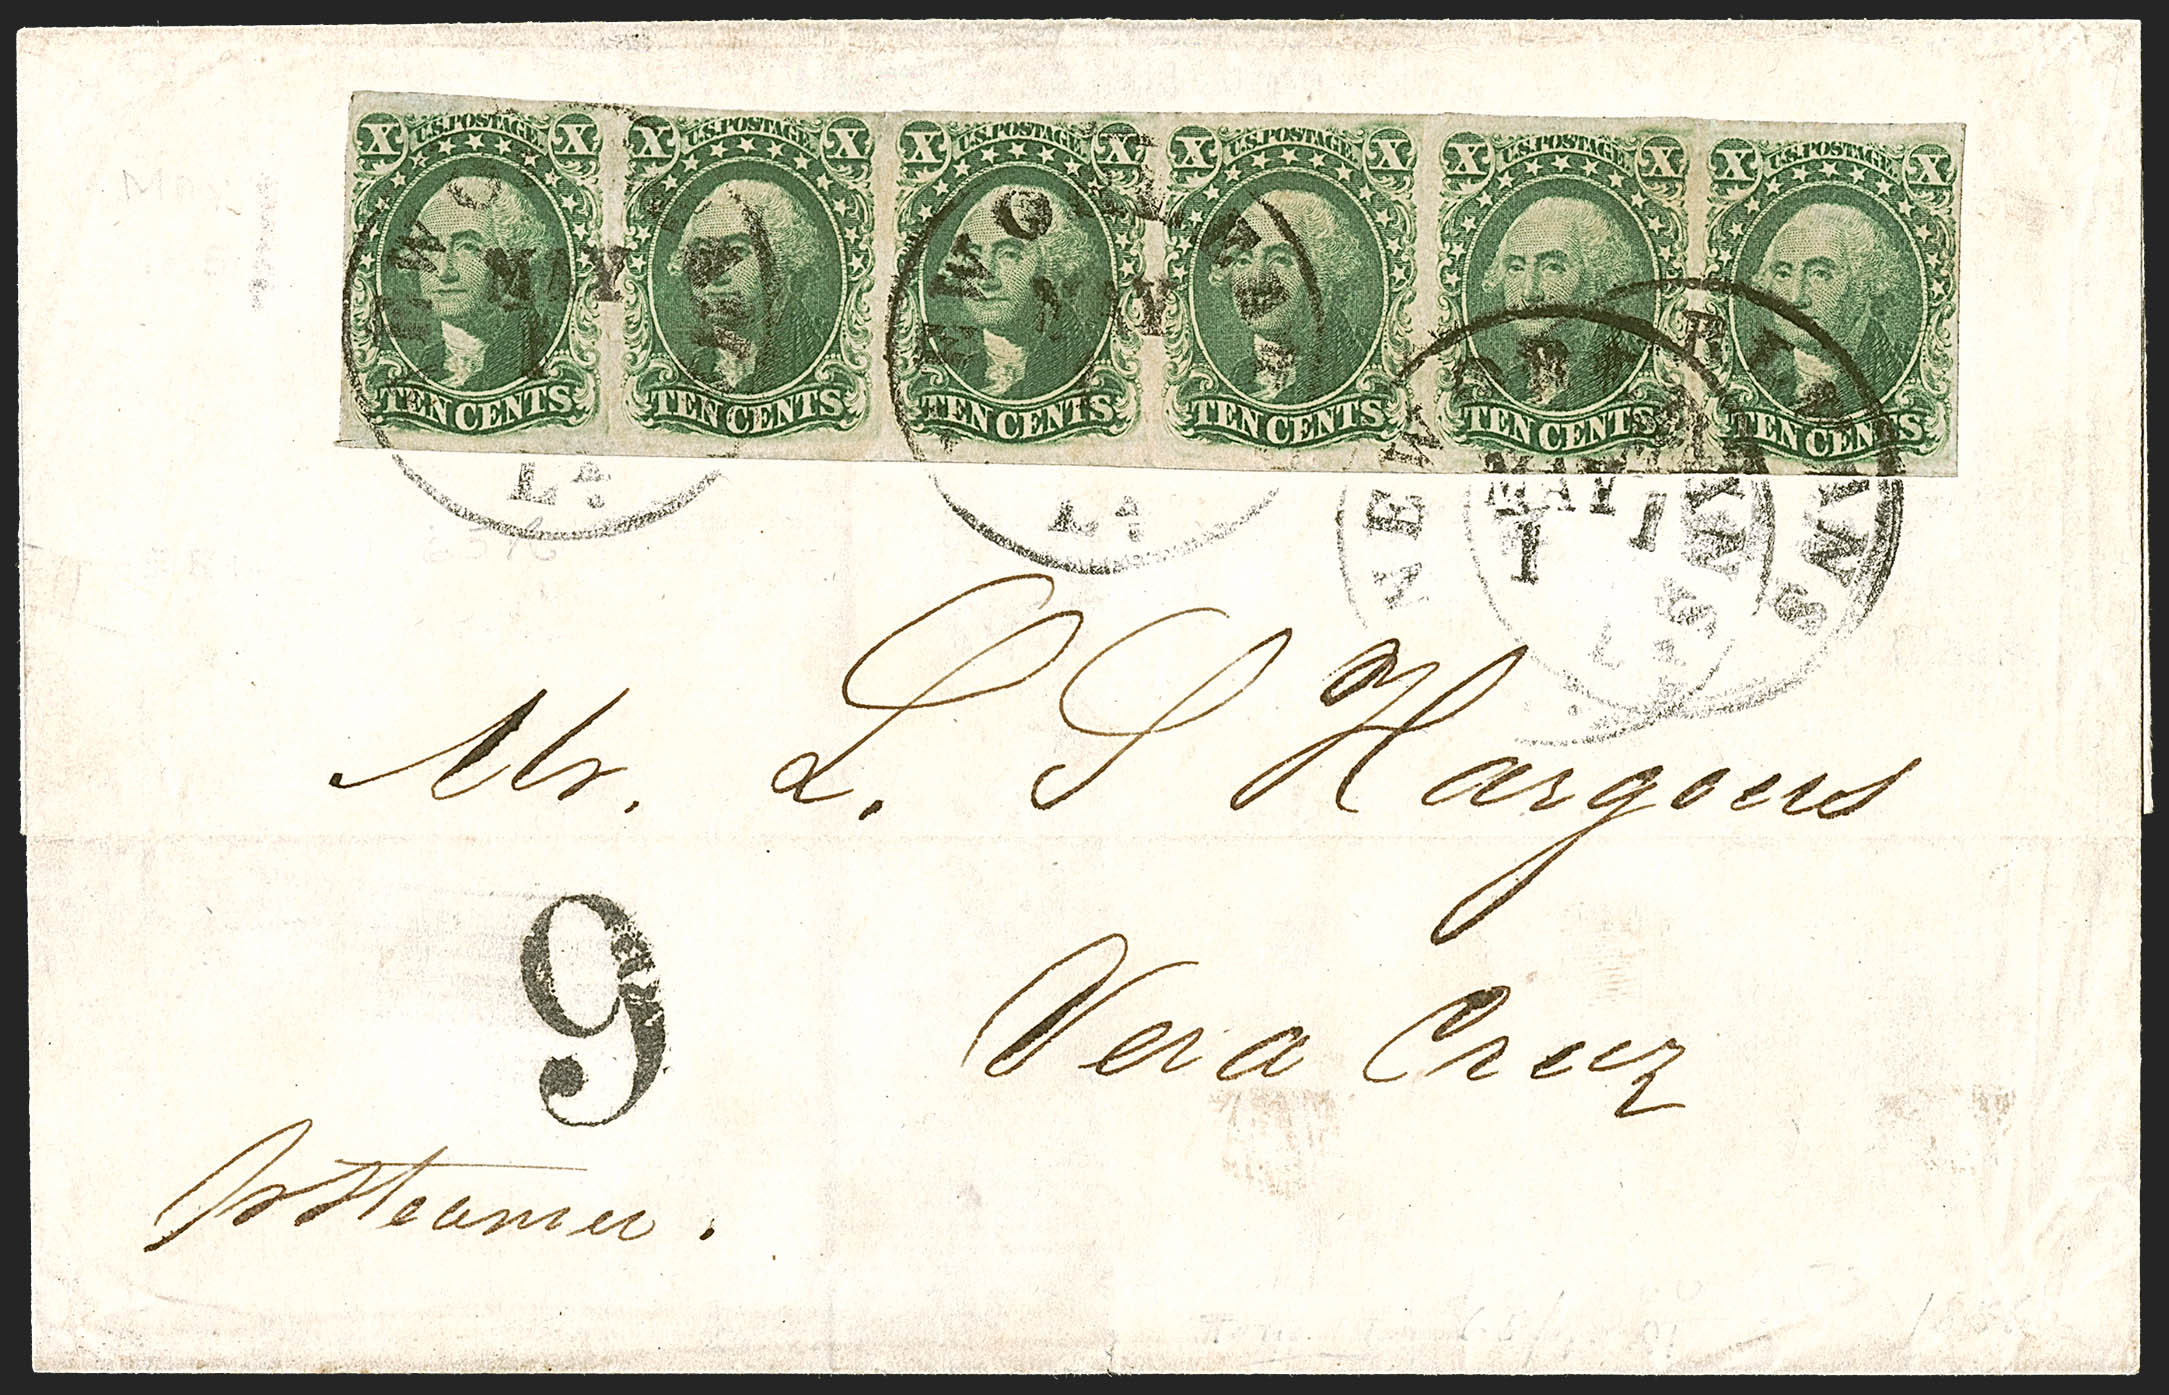 X U.S. POSTAGE. X X U.S. POSTAGE. X X U.S. POSTAGE. X X U.S. POSTAGE. X X U.S. POSTAGE. X X U.S. POSTAGE. X
TEN CENTS. TEN CENTS. TEN CENTS. TEN CENTS. TEN CENTS. TEN CENTS.
MAY
1
La
MAY
La
NEW ORLEANS
MAY
1
La
MAY
1
Mr. L. S Hargous
9
Vera Cruz
pr Steamer.